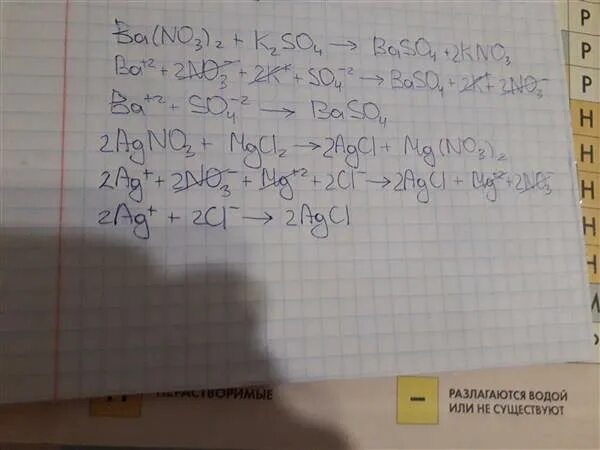 Ba(NO₃)₂ + K₂SO₄ → BaSO₄ + 2KNO₃
Ba⁺² + 2NO₃⁻ + 2K⁺ + SO₄⁻² → BaSO₄ + 2K⁺ + 2NO₃⁻
Ba⁺² + SO₄⁻² → BaSO₄
2AgNO₃ + MgCl₂ → 2AgCl + Mg(NO₃)₂
2Ag⁺ + 2NO₃⁻ + Mg⁺² + 2Cl⁻ → 2AgCl + Mg⁺² + 2NO₃⁻
2Ag⁺ + 2Cl⁻ → 2AgCl
Р
Р
Р
Н
Н
Н
Н
Н
М
НЕРАСТВОРИМЫЕ
– РАЗЛАГАЮТСЯ ВОДОЙ
ИЛИ НЕ СУЩЕСТВУЮТ